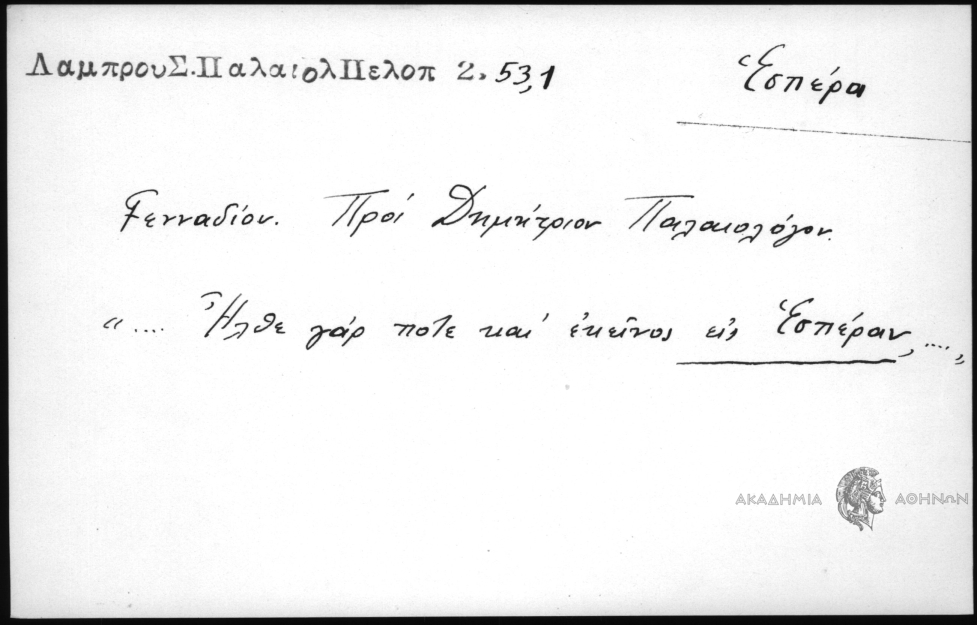 ΛαμπρουΣ.ΠαλαιολΠελοπ 2. 53,1
Ἑσπέρα
Γενναδίου. Πρὸς Δημήτριον Παλαιολόγον.
“.... Ἦλθε γάρ ποτε καὶ ἐκεῖνος εἰς Ἑσπέραν, ....„
ΑΚΑΔΗΜΙΑ ΑΘΗΝΩΝ